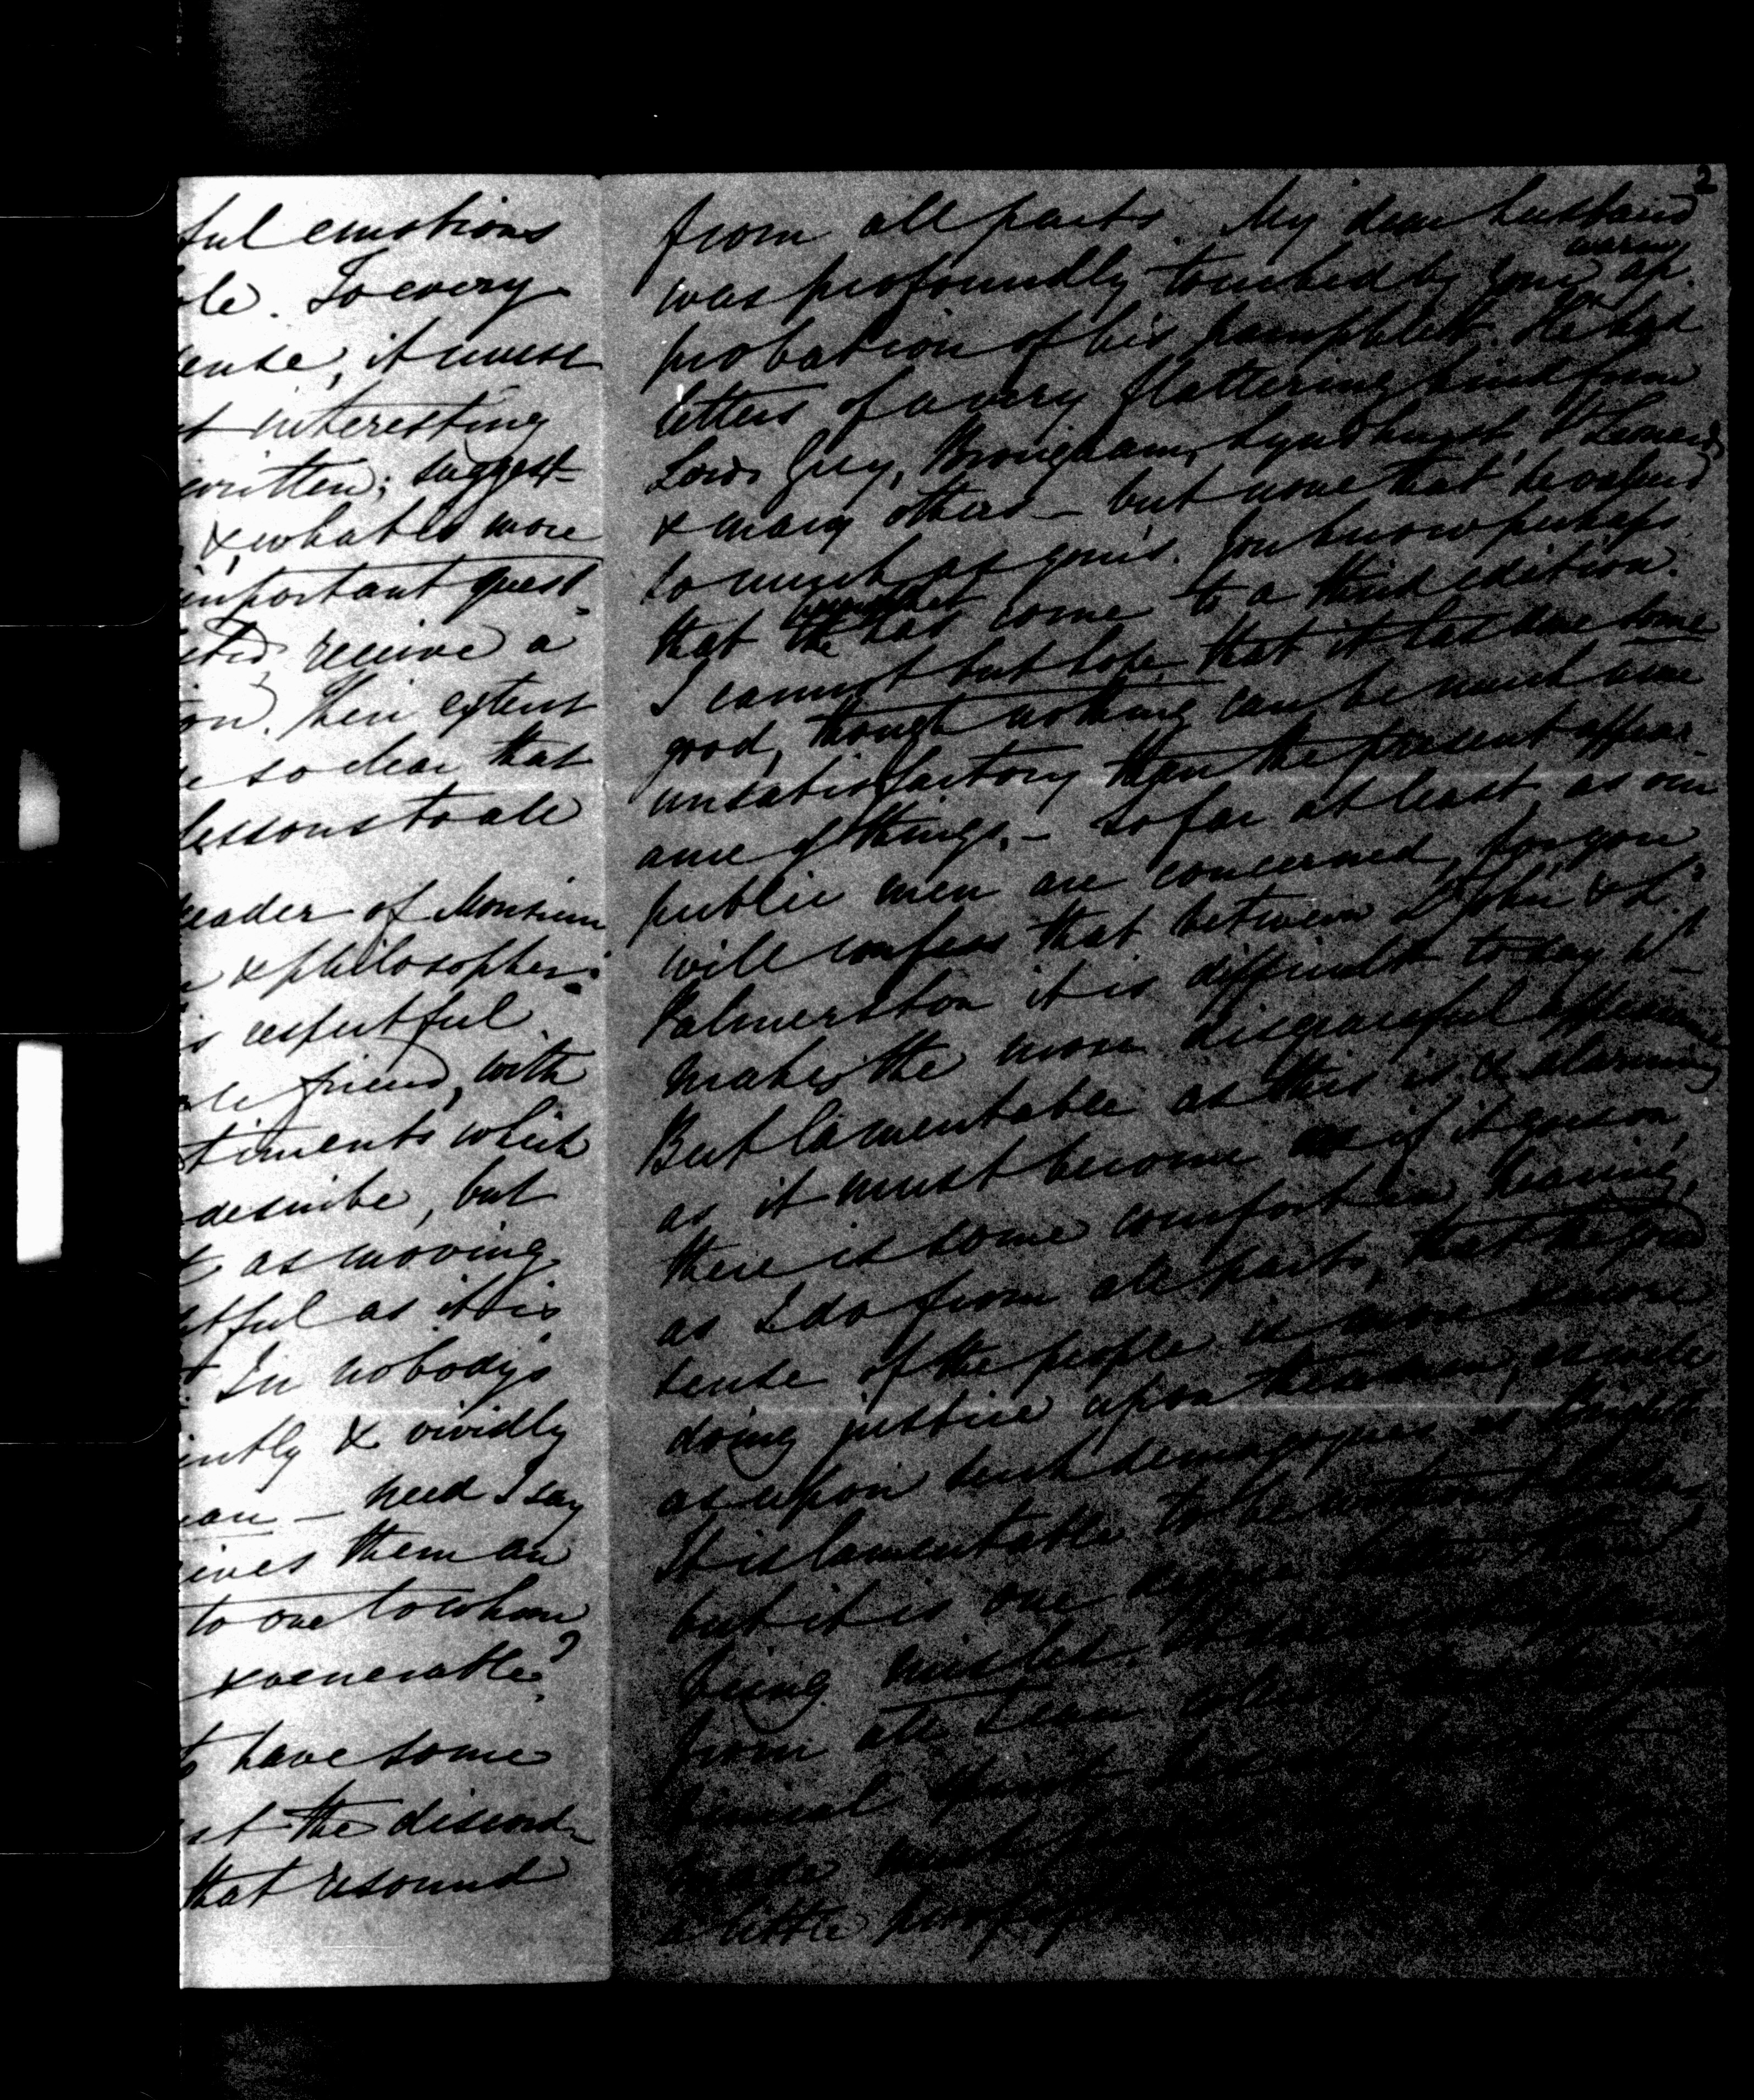 ful emotions
le. To every
ense, it must
t interesting
written; suggest-
& what is more
important quest-
receive a
on. Their extent
e so clear that
lessons to all
reader of Monsieur
& philosopher:
s respectful
le friend, with
timents which
describe, but
t as moving
tful as it is
In nobody's
ently & vividly
an — need I say
ives them an
to one to whom
& venerable?
to have some
st the discord-
that resound
2
from all parts. My dear husband
was profoundly touched by your warm ap-
probation of his pamphlet. He had
letters of a very flattering kind from
Lords Grey, Brougham, Lyndhurst, St Leonards
& many others — but none that he valued
so much as yours. You know perhaps
that the pamphlet has come to a third edition.
I cannot but hope that it has done some
good, though nothing can be much more
unsatisfactory than the present appear-
ance of things, — so far at least, as our
public men are concerned, for you
will confess that between Ld John & Ld
Palmerston it is difficult to say wh
makes the more disgraceful appearance
But lamentable as this is & alarming
as it must become if it goes on,
there is some comfort in hearing,
as I do from all parts, that the good
sense of the people is more & more
doing justice upon these men, as well
as upon such demagogues as Bright
It is lamentable to be without leaders,
but it is one degree better than
being misled.
from all I can
a little proof of